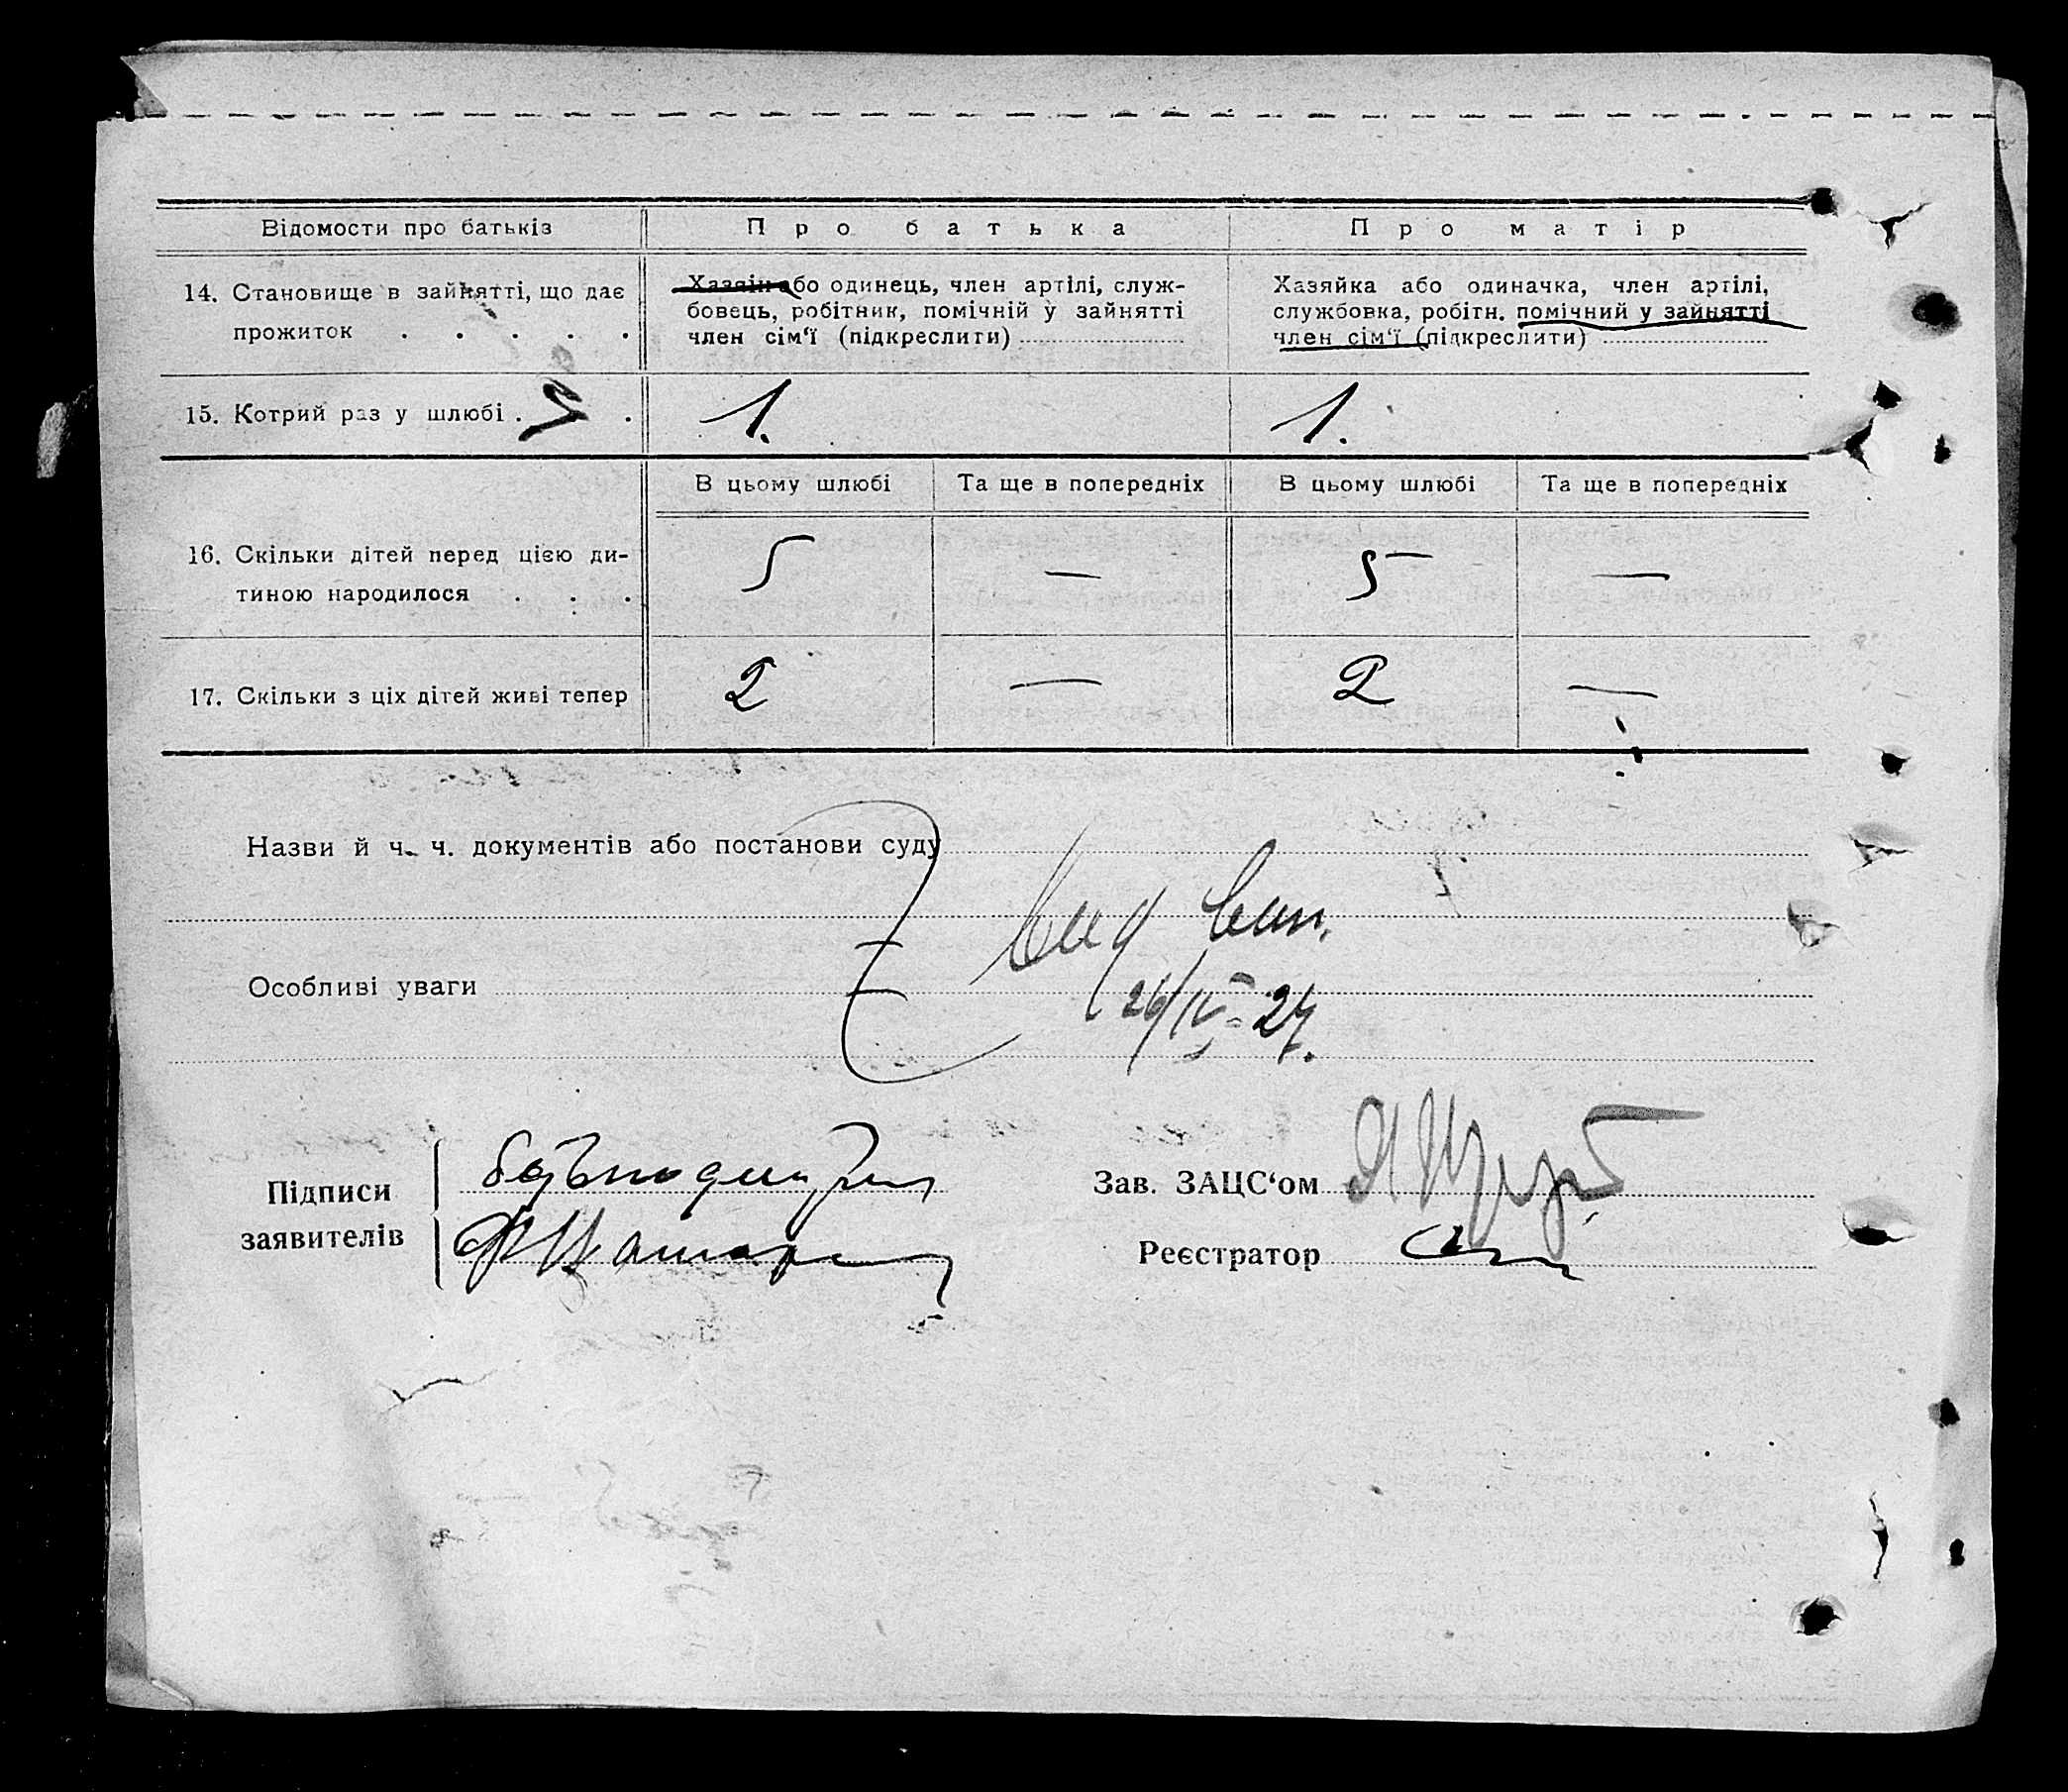 Відомости про батьків
Про батька
Про матір
14. Становище в зайнятті, що дає
прожиток . . . . .
Хазяін або одинець, член артілі, служ-
бовець, робітник, помічній у зайнятті
член сім‘ї (підкреслити)
Хазяйка або одиначка, член артілі,
службовка, робітн. помічний у зайнятті
член сім‘ї (підкреслити)
15. Котрий раз у шлюбі . .
1.
1.
В цьому шлюбі
Та ще в попередніх
В цьому шлюбі
Та ще в попередніх
16. Скільки дітей перед цією ди-
тиною народилося . . .
5
—
5
—
17. Скільки з ціх дітей живі тепер
2
—
2
—
Назви й ч. ч. документів або постанови суду
Особливі уваги
26/IV-27.
Підписи
заявителів
Зав. ЗАЦС‘ом
Реєстратор